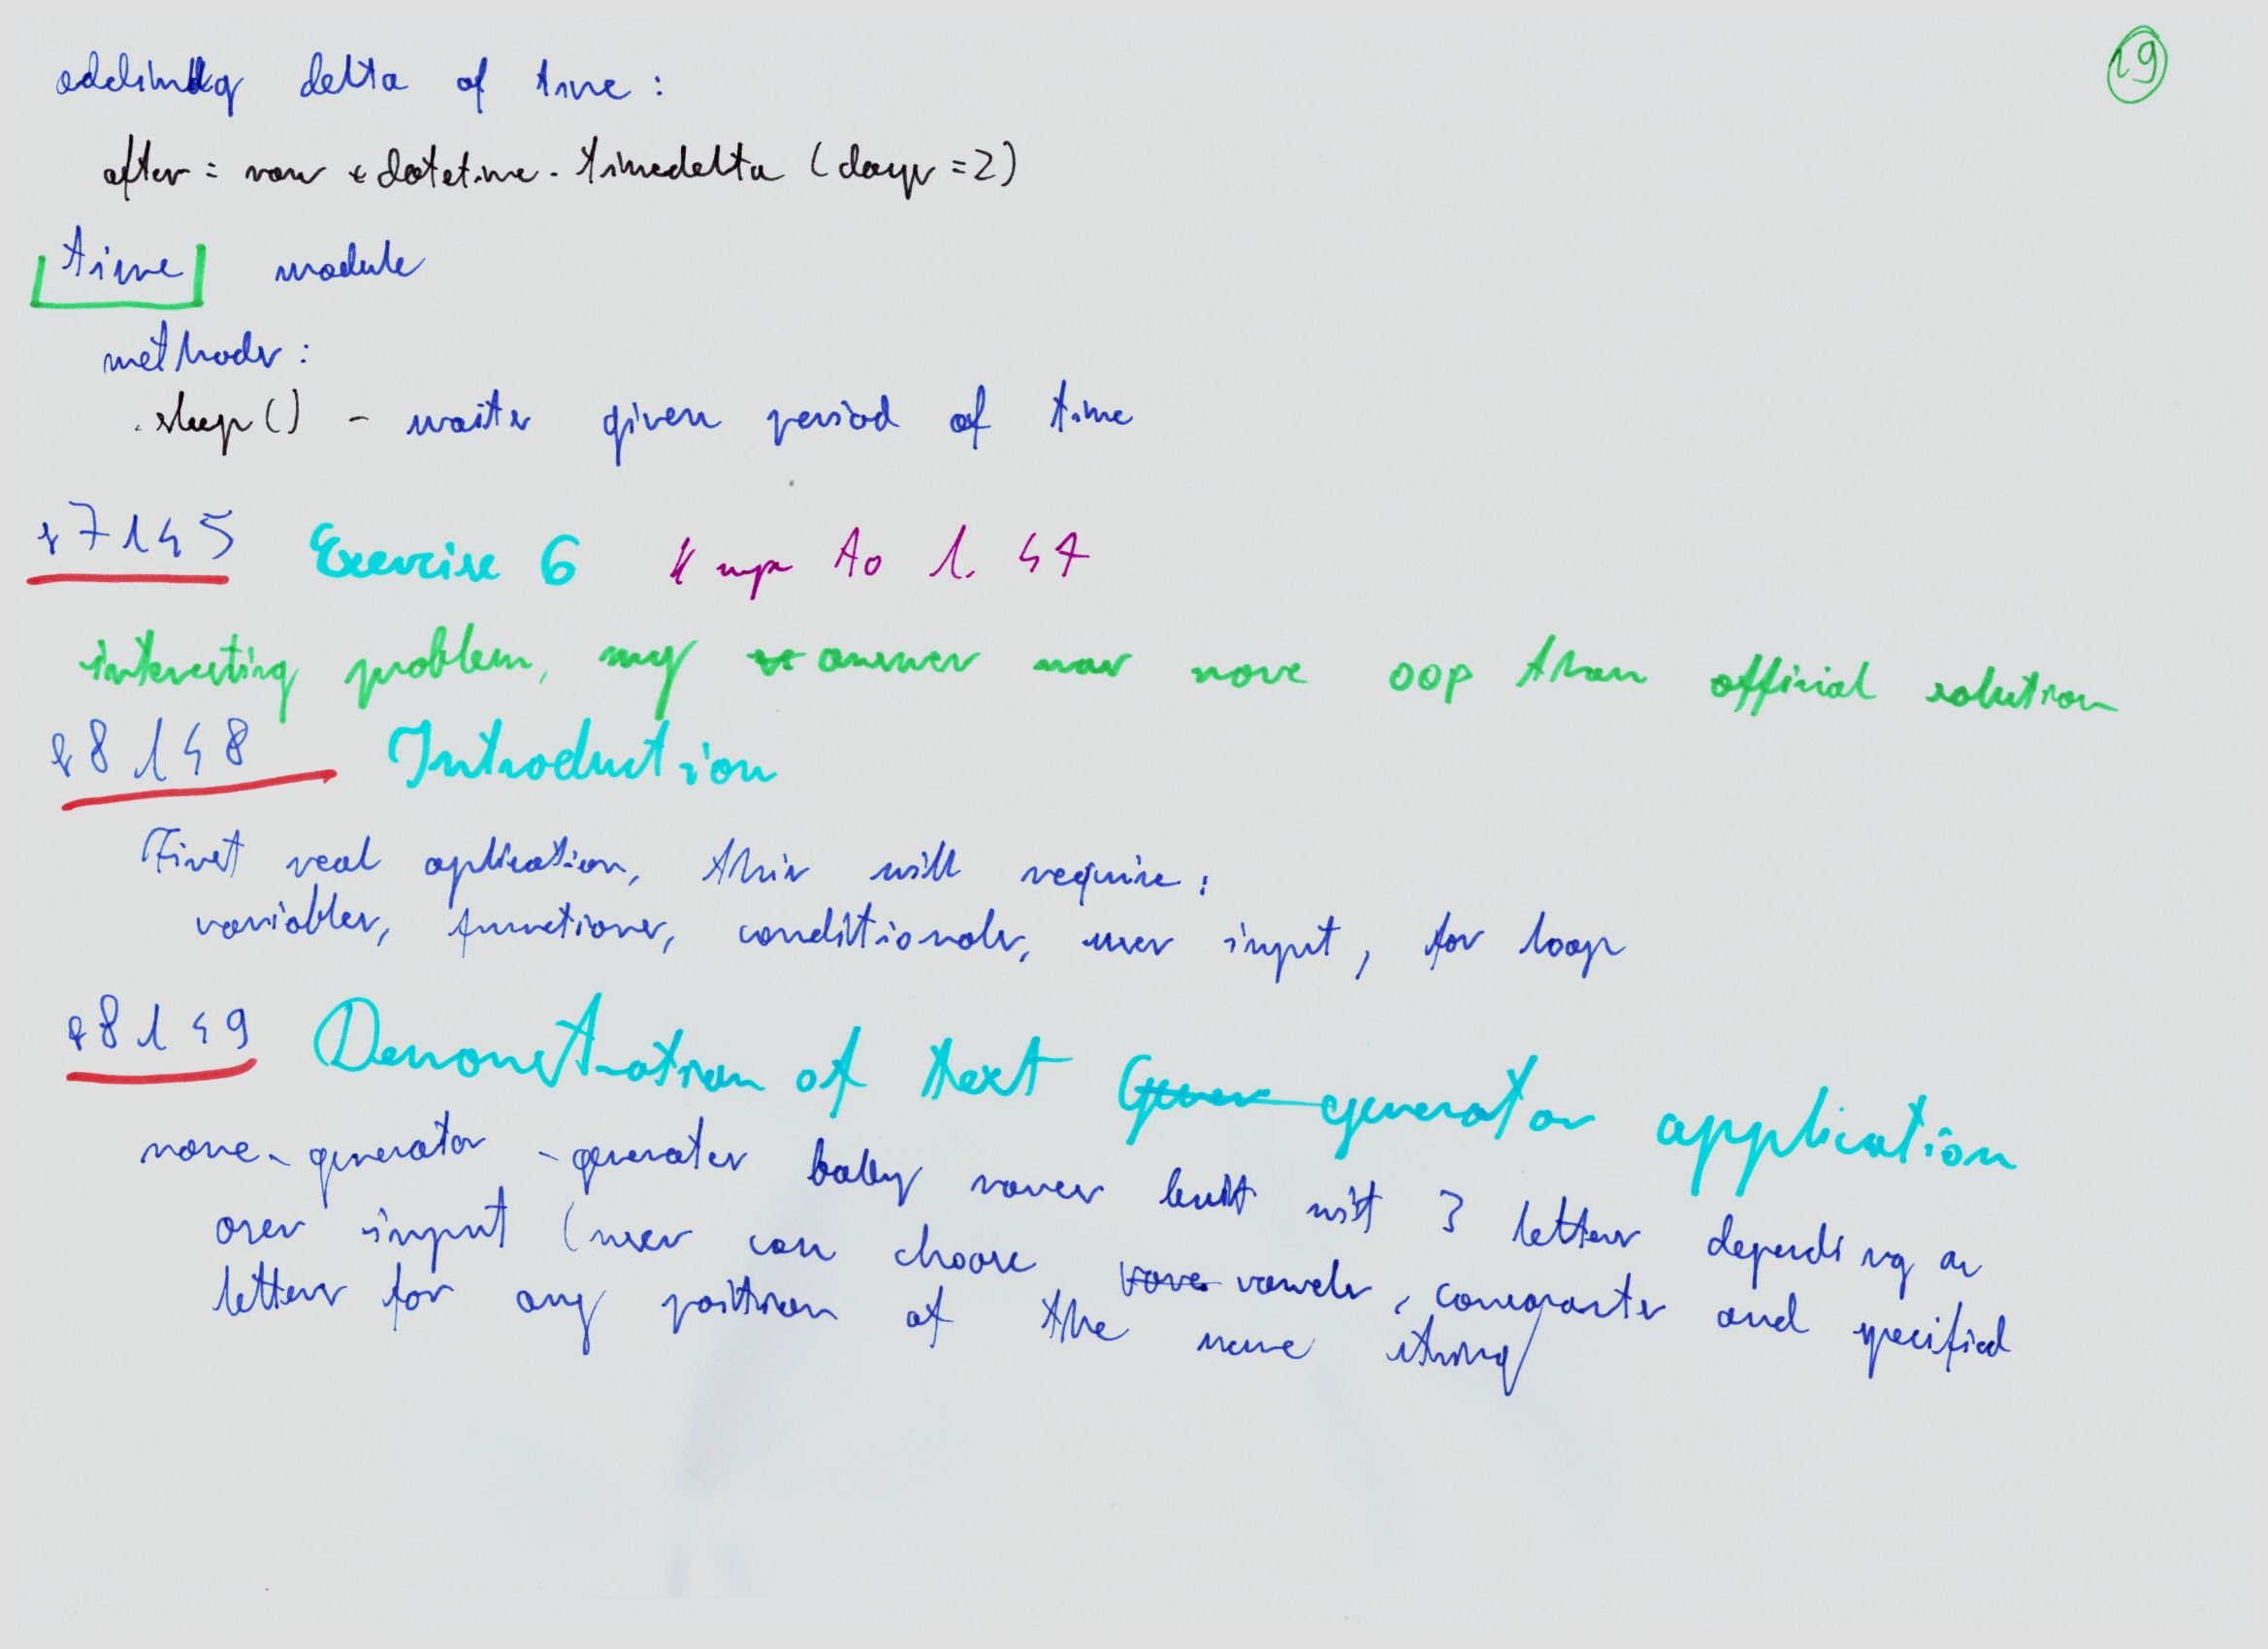 19
adding delta of time :
after = now + datetime. timedelta (days = 2)
time module
methods :
.sleep() - waits given period of time
s7 l45 Exercise 6 // up to l. 47
interesting problem, my answer was more oop than official solution
s8 l48 Introduction
First real aplication, this will require :
variables, functions, conditionals, user input, for loop
s8 l49 Demonstration of text generator application
name-generator - generates baby names built wit 3 letters depending on
user input (user can choose vowels, consonants and specified
letters for any position of the name string